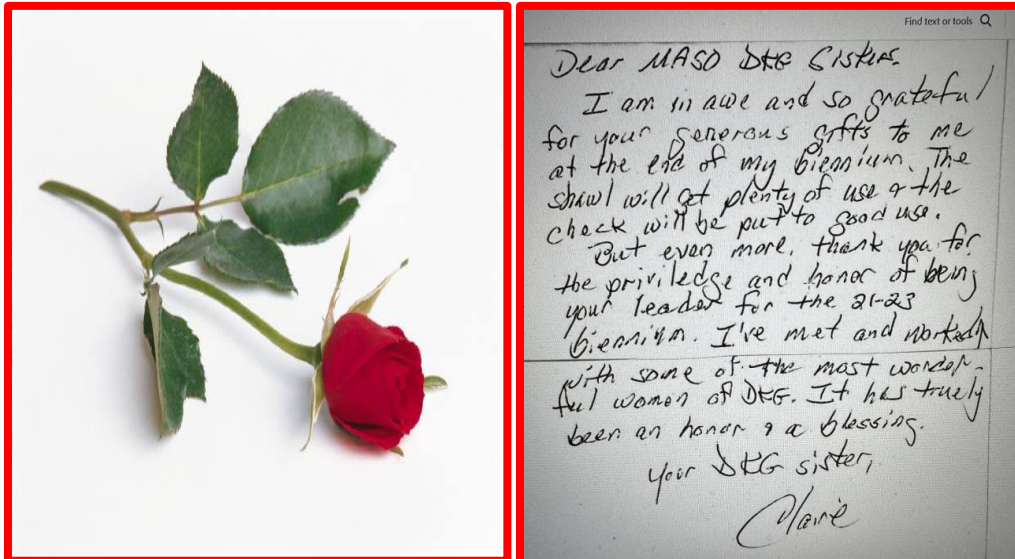 Find text or tools
Dear MASO DKG Sisters.
I am in awe and so grateful
for your generous gifts to me
at the end of my biennium. The
shawl will get plenty of use & the
check will be put to good use.
But even more, thank you for
the priviledge and honor of being
your leader for the 21-23
biennium. I've met and worked
with some of the most wonder-
ful women of DKG. It has truely
been an honor & a blessing.
your DKG sister,
Claire